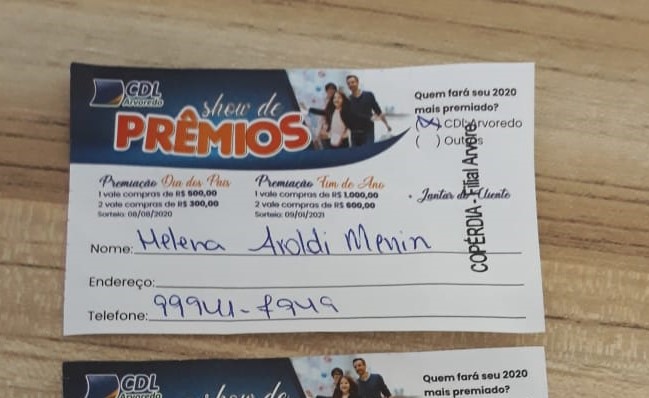 CDL
Arvoredo
show de
PRÊMIOS
Quem fará seu 2020
mais premiado?
(X) CDL Arvoredo
( ) Outros
Premiação Dia dos Pais
1 vale compras de R$ 500,00
2 vale compras de R$ 300,00
Sorteio: 08/08/2020
Premiação Fim de Ano
1 vale compras de R$ 1.000,00
2 vale compras de R$ 600,00
Sorteio: 09/01/2021
• Jantar do Cliente
COPÉRDIA - Filial Arvore
Nome: Helena Aroldi Menin
Endereço:
Telefone: 99941-7949
CDL
Arvoredo
show de
Quem fará seu 2020
mais premiado?